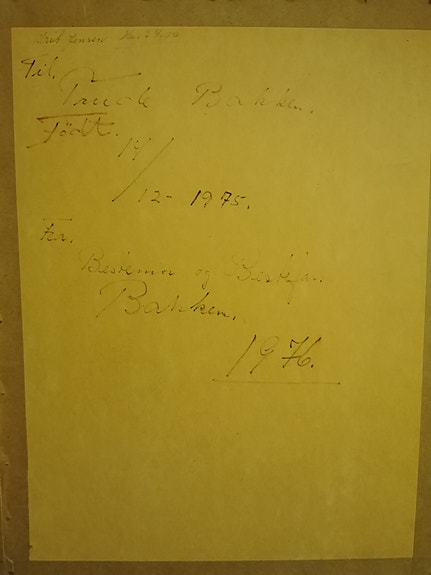 Til.
Trude Bakken.
Født.
14/
12- 1975.
Fra.
Bestemor og Bestefar.
Bakken.
1976.